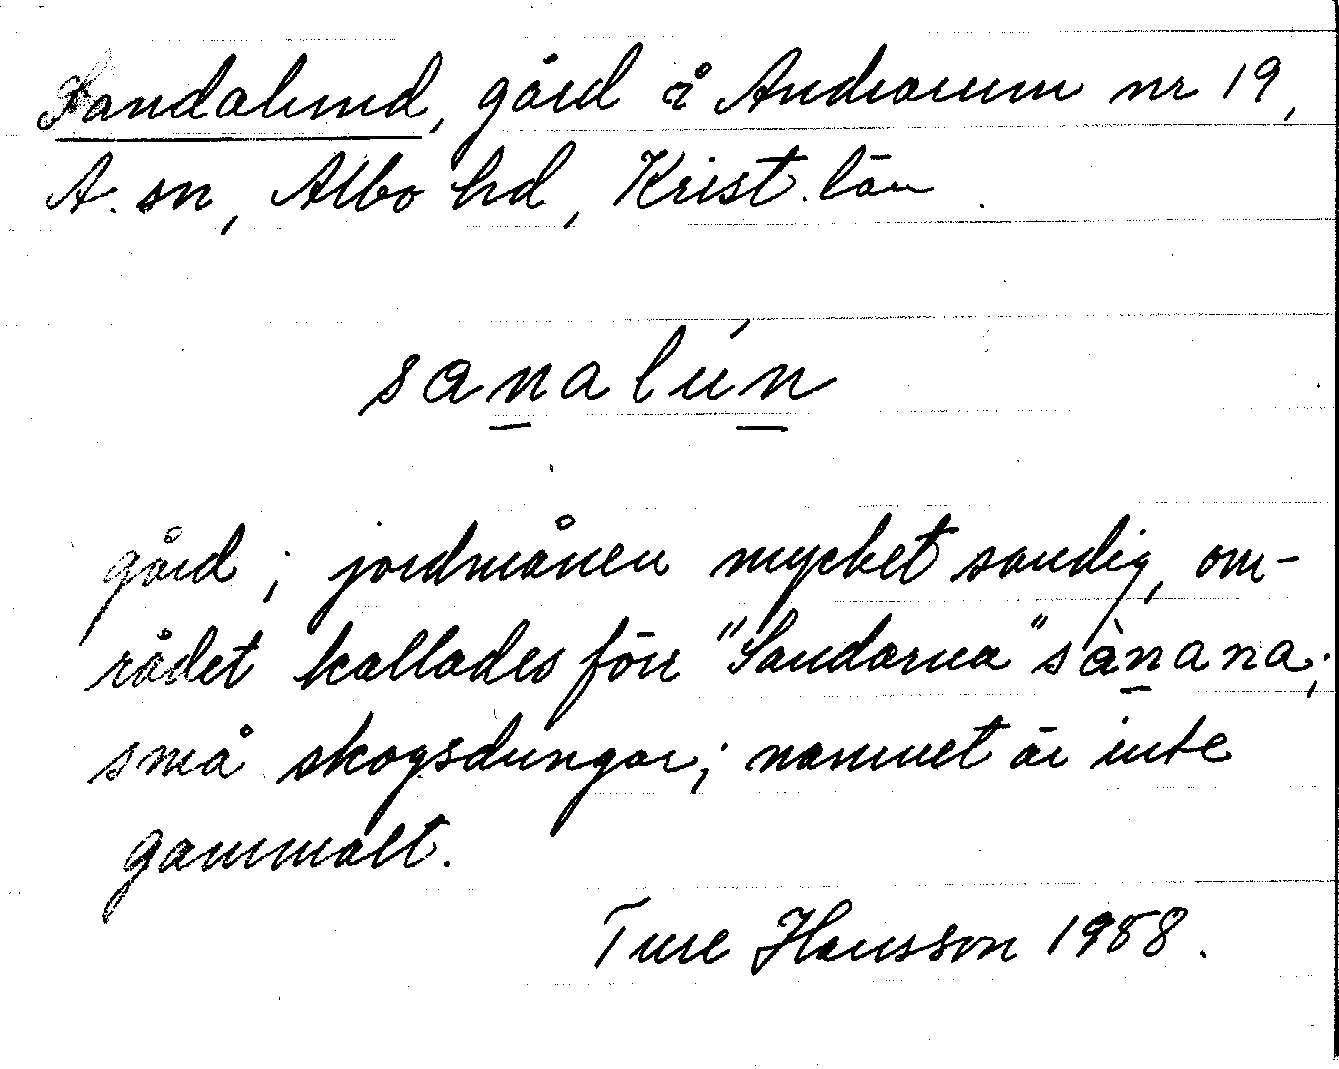 Sandalund, gård å Andrarum nr 19,
A. sn, Albo hd, Krist. län.
sanalún
gård; jordmånen mycket sandig, om-
rådet kallades förr "Sandarna" sànana;
små skogsdungar; namnet är inte
gammalt.
Ture Hansson 1988.